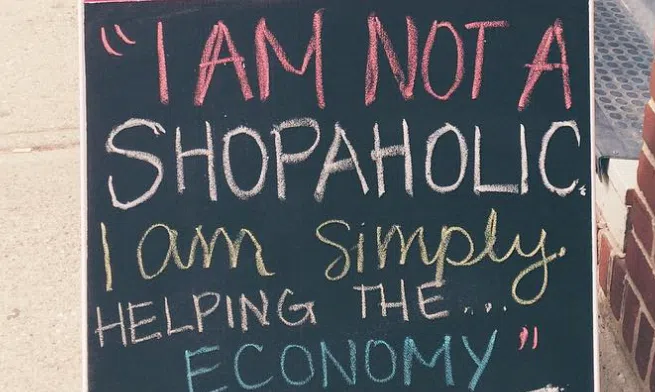 "I AM NOT A
SHOPAHOLIC.
I am simply.
HELPING THE...
ECONOMY"